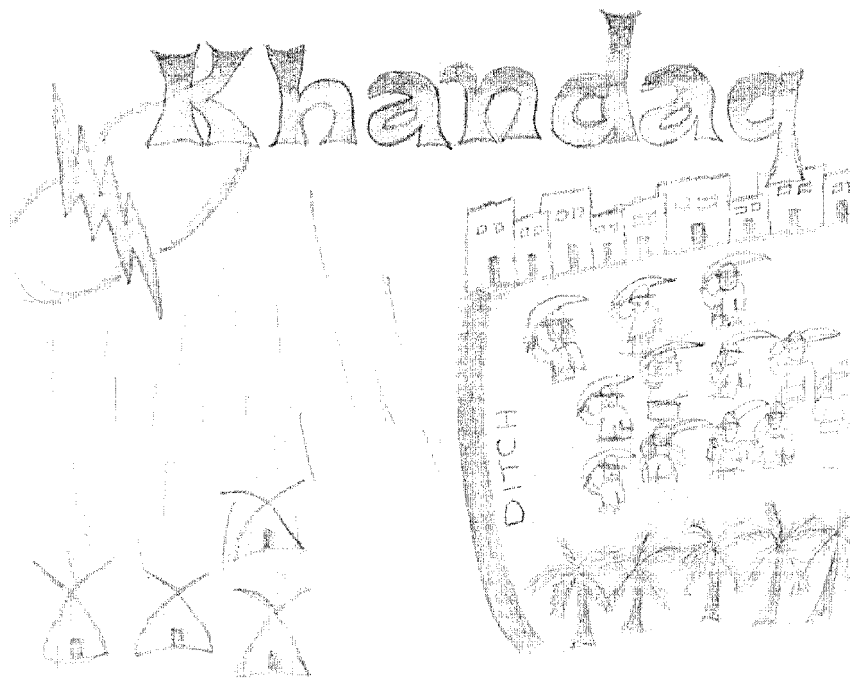 Khandaq
DITCH